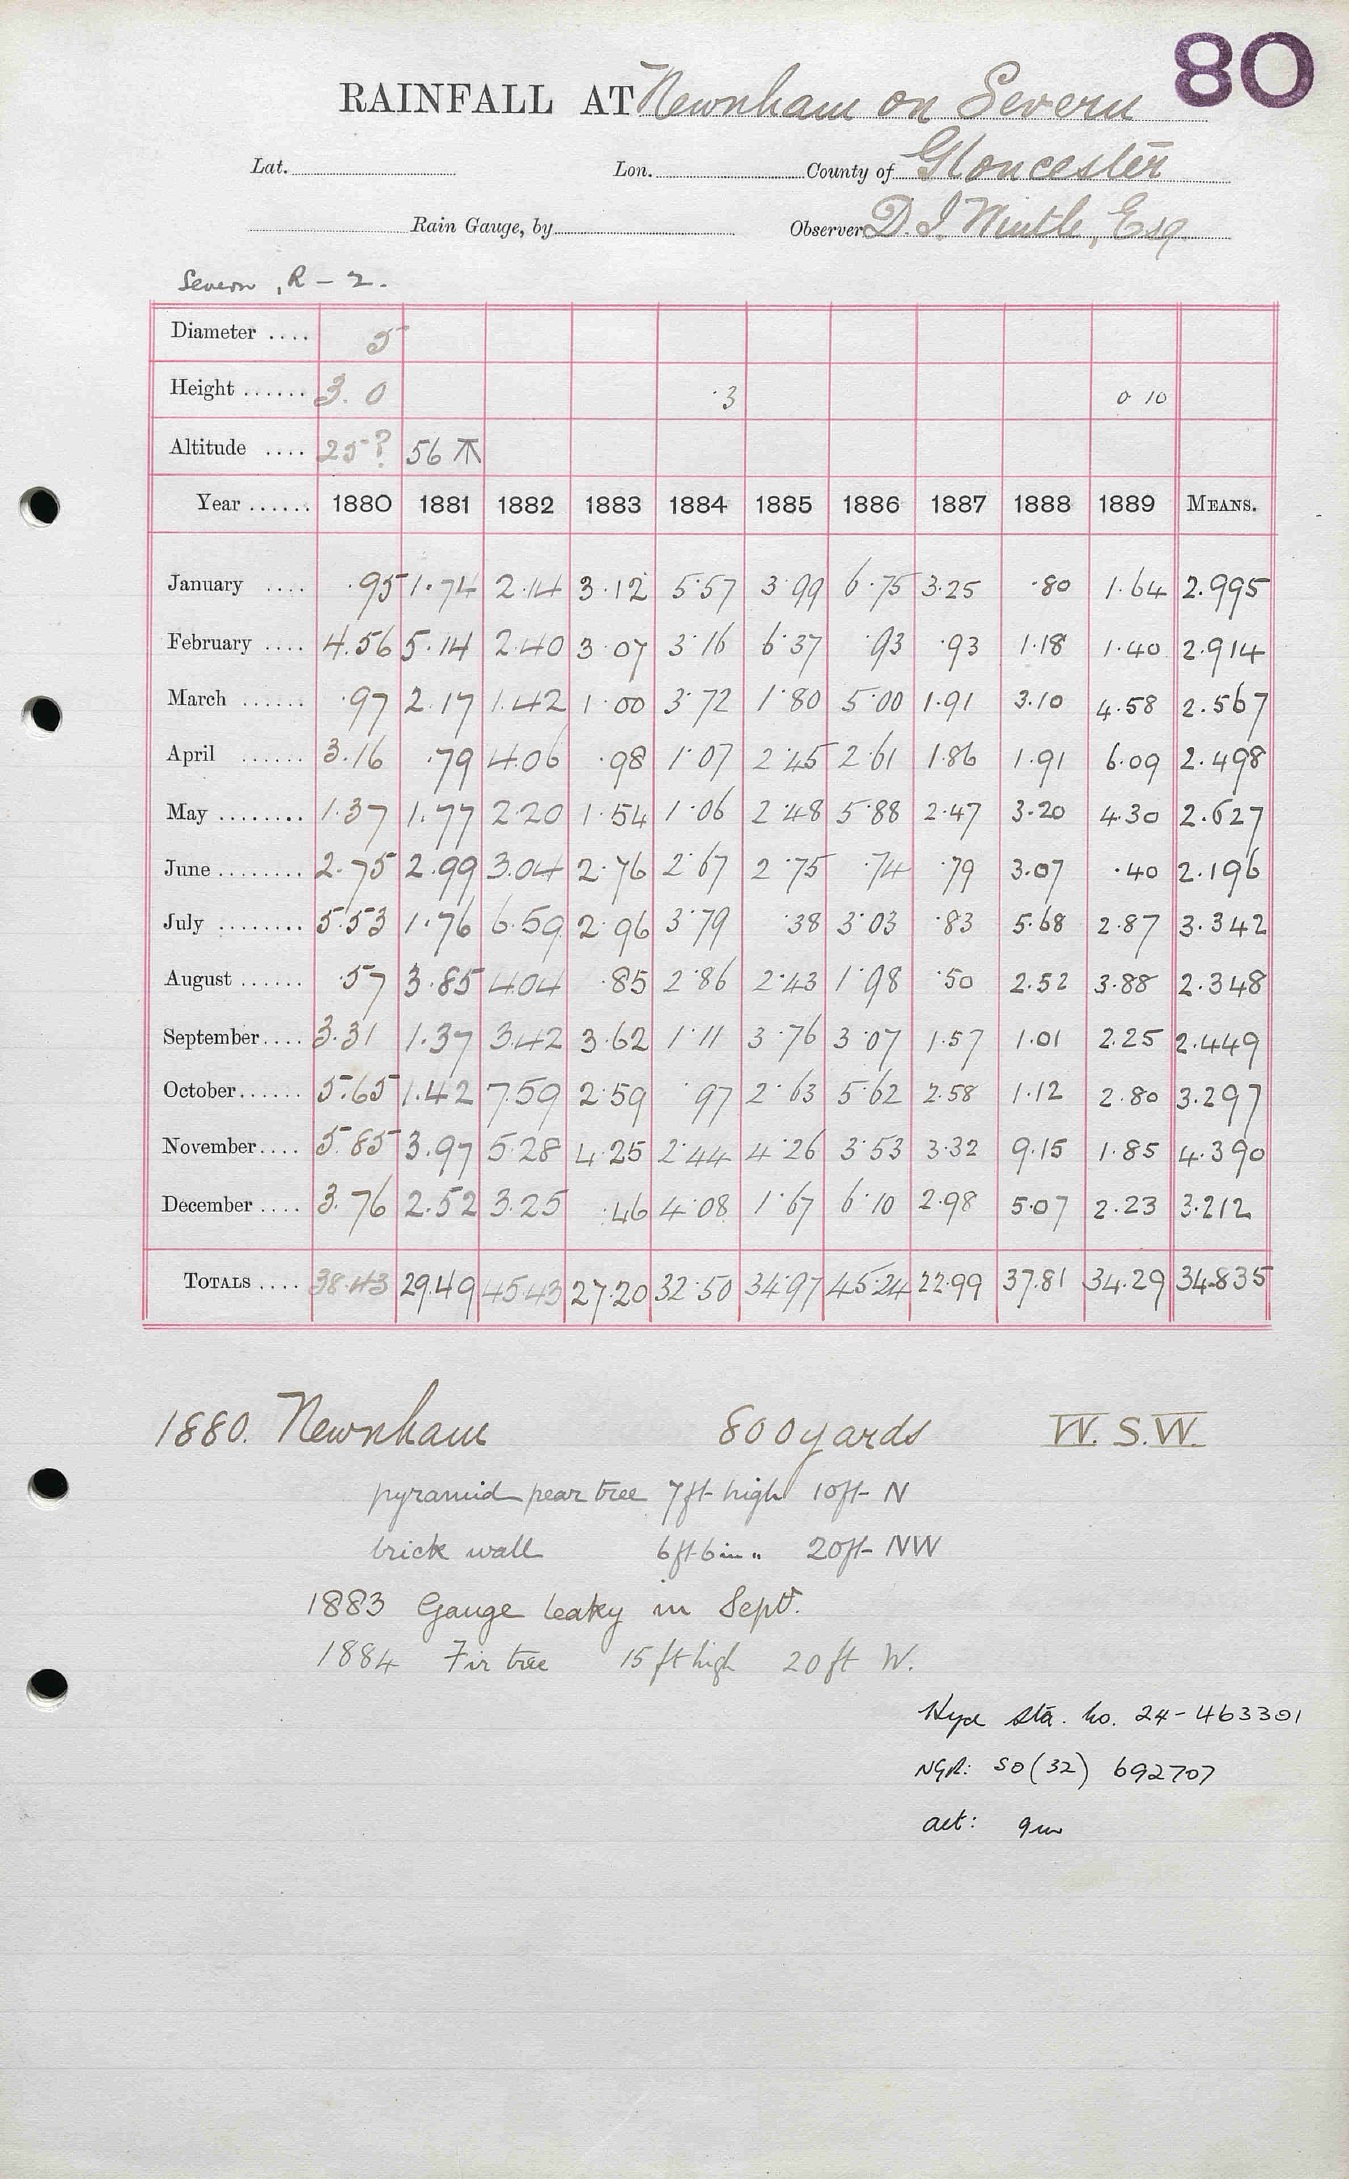 80
RAINFALL AT Newnham on Severn
Lat. Lon. County of Gloucester
Rain Gauge, by Observer D. J. Wintle, Esq
Severn, R - 2.
Diameter .... 5
Height ...... 3. 0 ·3 0 10
Altitude .... 25? 56
Year ...... 1880 1881 1882 1883 1884 1885 1886 1887 1888 1889 MEANS.
January .... ·95 1·74 2·14 3·12 5·57 3·99 6·75 3·25 ·80 1·64 2.995
February .... 4.56 5·14 2·40 3·07 3·16 6·37 ·93 ·93 1·18 1·40 2.914
March ...... ·97 2·17 1·42 1·00 3·72 1·80 5·00 1·91 3·10 4·58 2.567
April ...... 3·16 ·79 4·06 ·98 1·07 2·45 2·61 1·86 1·91 6·09 2.498
May ........ 1·37 1·77 2·20 1·54 1·06 2·48 5·88 2·47 3·20 4·30 2.627
June ........ 2·75 2·99 3·04 2·76 2·67 2·75 ·74 ·79 3·07 ·40 2.196
July ........ 5·53 1·76 6·59 2·96 3·79 ·38 3·03 ·83 5·68 2·87 3.342
August ...... ·57 3·85 4·04 ·85 2·86 2·43 1·98 ·50 2·52 3·88 2.348
September .... 3·31 1·37 3·42 3·62 1·11 3·76 3·07 1·57 1·01 2·25 2.449
October ...... 5·65 1·42 7·59 2·59 ·97 2·63 5·62 2·58 1·12 2·80 3.297
November .... 5·85 3·97 5·28 4·25 2·44 4·26 3·53 3·32 9·15 1·85 4.390
December .... 3·76 2·52 3·25 ·46 4·08 1·67 6·10 2·98 5·07 2·23 3.212
TOTALS .... 38·43 29·49 45·43 27·20 32·50 34·97 45·24 22·99 37·81 34·29 34.835
1880. Newnham 800 yards W. S. W.
pyramid pear tree 7ft high 10ft N
brick wall 6ft 6in " 20ft NW
1883 Gauge leaky in Sept.
1884 Fir tree 15 ft high 20 ft W.
Hyd Sta. No. 24-463301
NGR: SO (32) 692707
alt: 9m